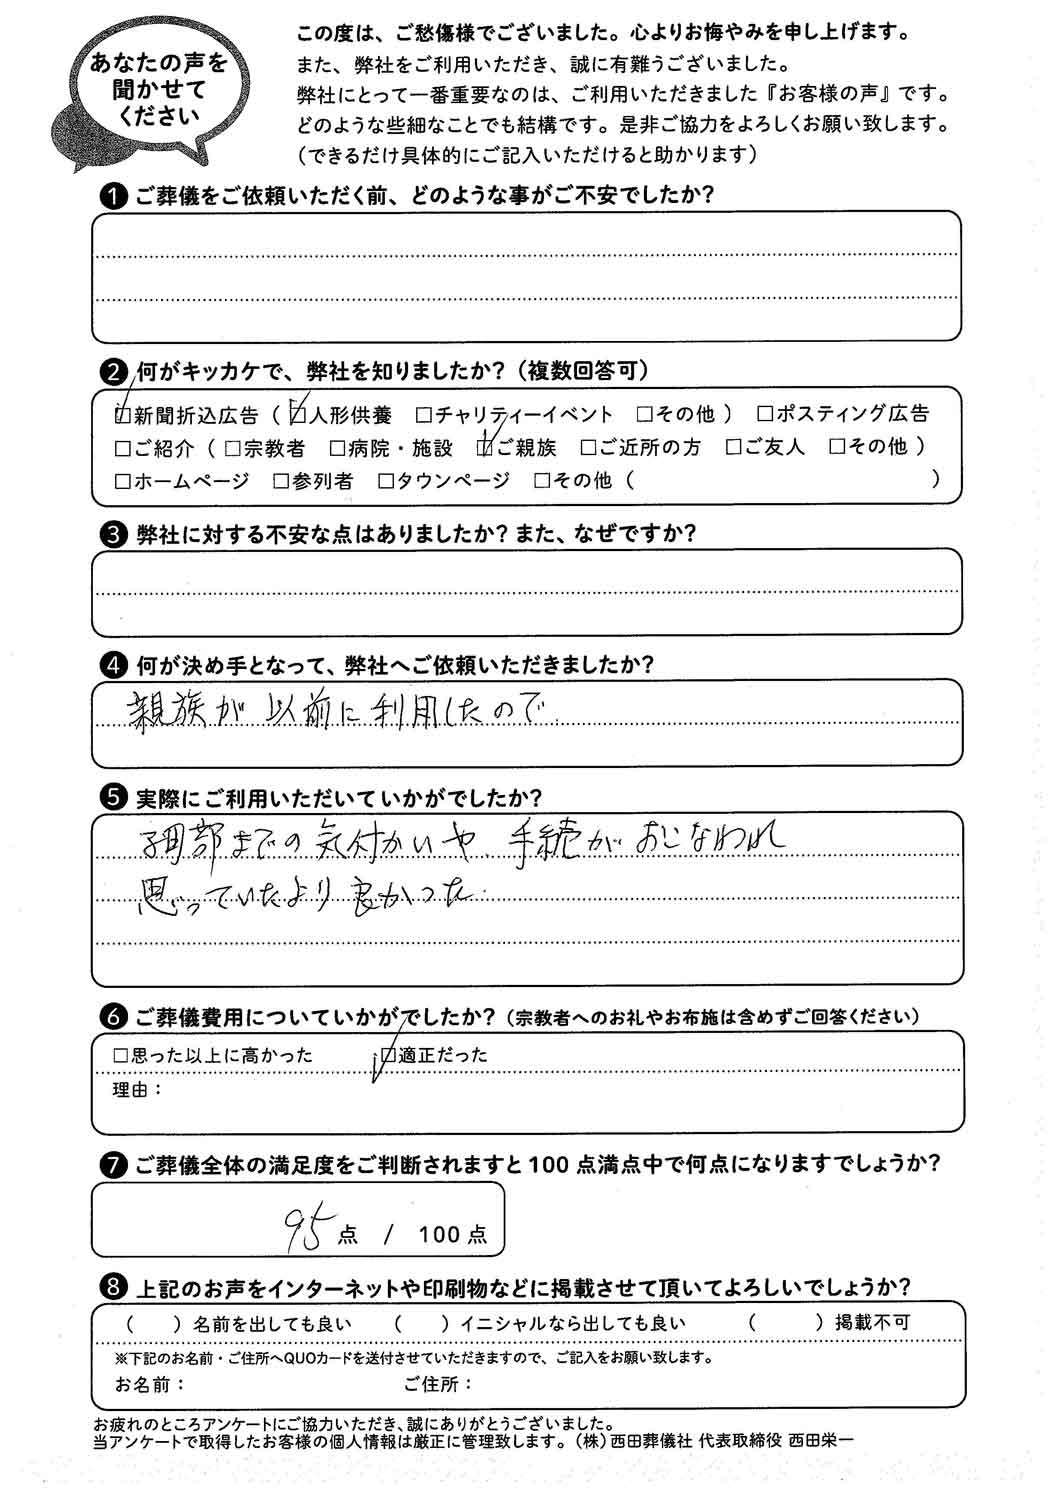 あなたの声を
聞かせて
ください
この度は、ご愁傷様でございました。心よりお悔やみを申し上げます。
また、弊社をご利用いただき、誠に有難うございました。
弊社にとって一番重要なのは、ご利用いただきました『お客様の声』です。
どのような些細なことでも結構です。是非ご協力をよろしくお願い致します。
(できるだけ具体的にご記入いただけると助かります)
❶ ご葬儀をご依頼いただく前、どのような事がご不安でしたか?
❷ 何がキッカケで、弊社を知りましたか?(複数回答可)
☑新聞折込広告 ( ☑人形供養 □チャリティーイベント □その他 ) □ポスティング広告
□ご紹介 ( □宗教者 □病院・施設 ☑ご親族 □ご近所の方 □ご友人 □その他 )
□ホームページ □参列者 □タウンページ □その他 ( )
❸ 弊社に対する不安な点はありましたか? また、なぜですか?
❹ 何が決め手となって、弊社へご依頼いただきましたか?
親族が以前に利用したので
❺ 実際にご利用いただいていかがでしたか?
細部までの気付かいや、手続がおこなわれ
思っていたより良かった.
❻ ご葬儀費用についていかがでしたか?(宗教者へのお礼やお布施は含めずご回答ください)
□思った以上に高かった ☑適正だった
理由:
❼ ご葬儀全体の満足度をご判断されますと100点満点中で何点になりますでしょうか?
95点 / 100点
❽ 上記のお声をインターネットや印刷物などに掲載させて頂いてよろしいでしょうか?
( )名前を出しても良い ( )イニシャルなら出しても良い ( )掲載不可
※下記のお名前・ご住所へQUOカードを送付させていただきますので、ご記入をお願い致します。
お名前: ご住所:
お疲れのところアンケートにご協力いただき、誠にありがとうございました。
当アンケートで取得したお客様の個人情報は厳正に管理致します。(株)西田葬儀社 代表取締役 西田栄一